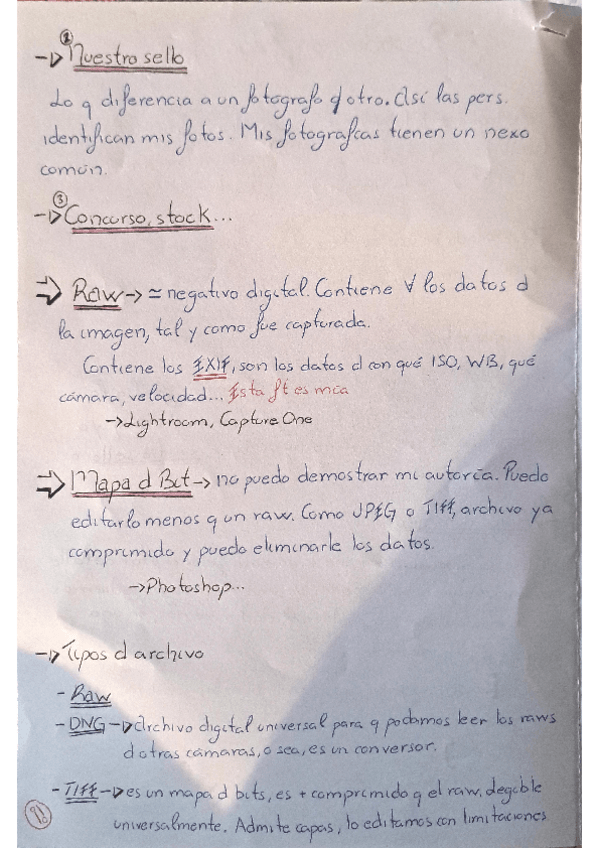 ② → Nuestro sello
Lo q diferencia a un fotografo d otro. Así las pers.
identifican mis fotos. Mis fotografías tienen un nexo
común.
③ → Concurso, stock...
⇒ Raw → ≃ negativo digital. Contiene ∀ los datos d
la imagen, tal y como fue capturada.
Contiene los EXIF, son los datos d con qué ISO, WB, qué
cámara, velocidad... Esta ft es mía
→ Lightroom, Capture One
⇒ Mapa d Bit → no puedo demostrar mi autoría. Puedo
editarlo menos q un raw. Como JPEG o TIFF, archivo ya
comprimido y puedo eliminarle los datos.
→ Photoshop...
→ Tipos d archivo
- Raw
- DNG → Archivo digital universal para q podamos leer los raws
d otras cámaras, o sea, es un conversor.
- TIFF → es un mapa d bits, es + comprimido q el raw. Legible
universalmente. Admite capas, lo editamos con limitaciones